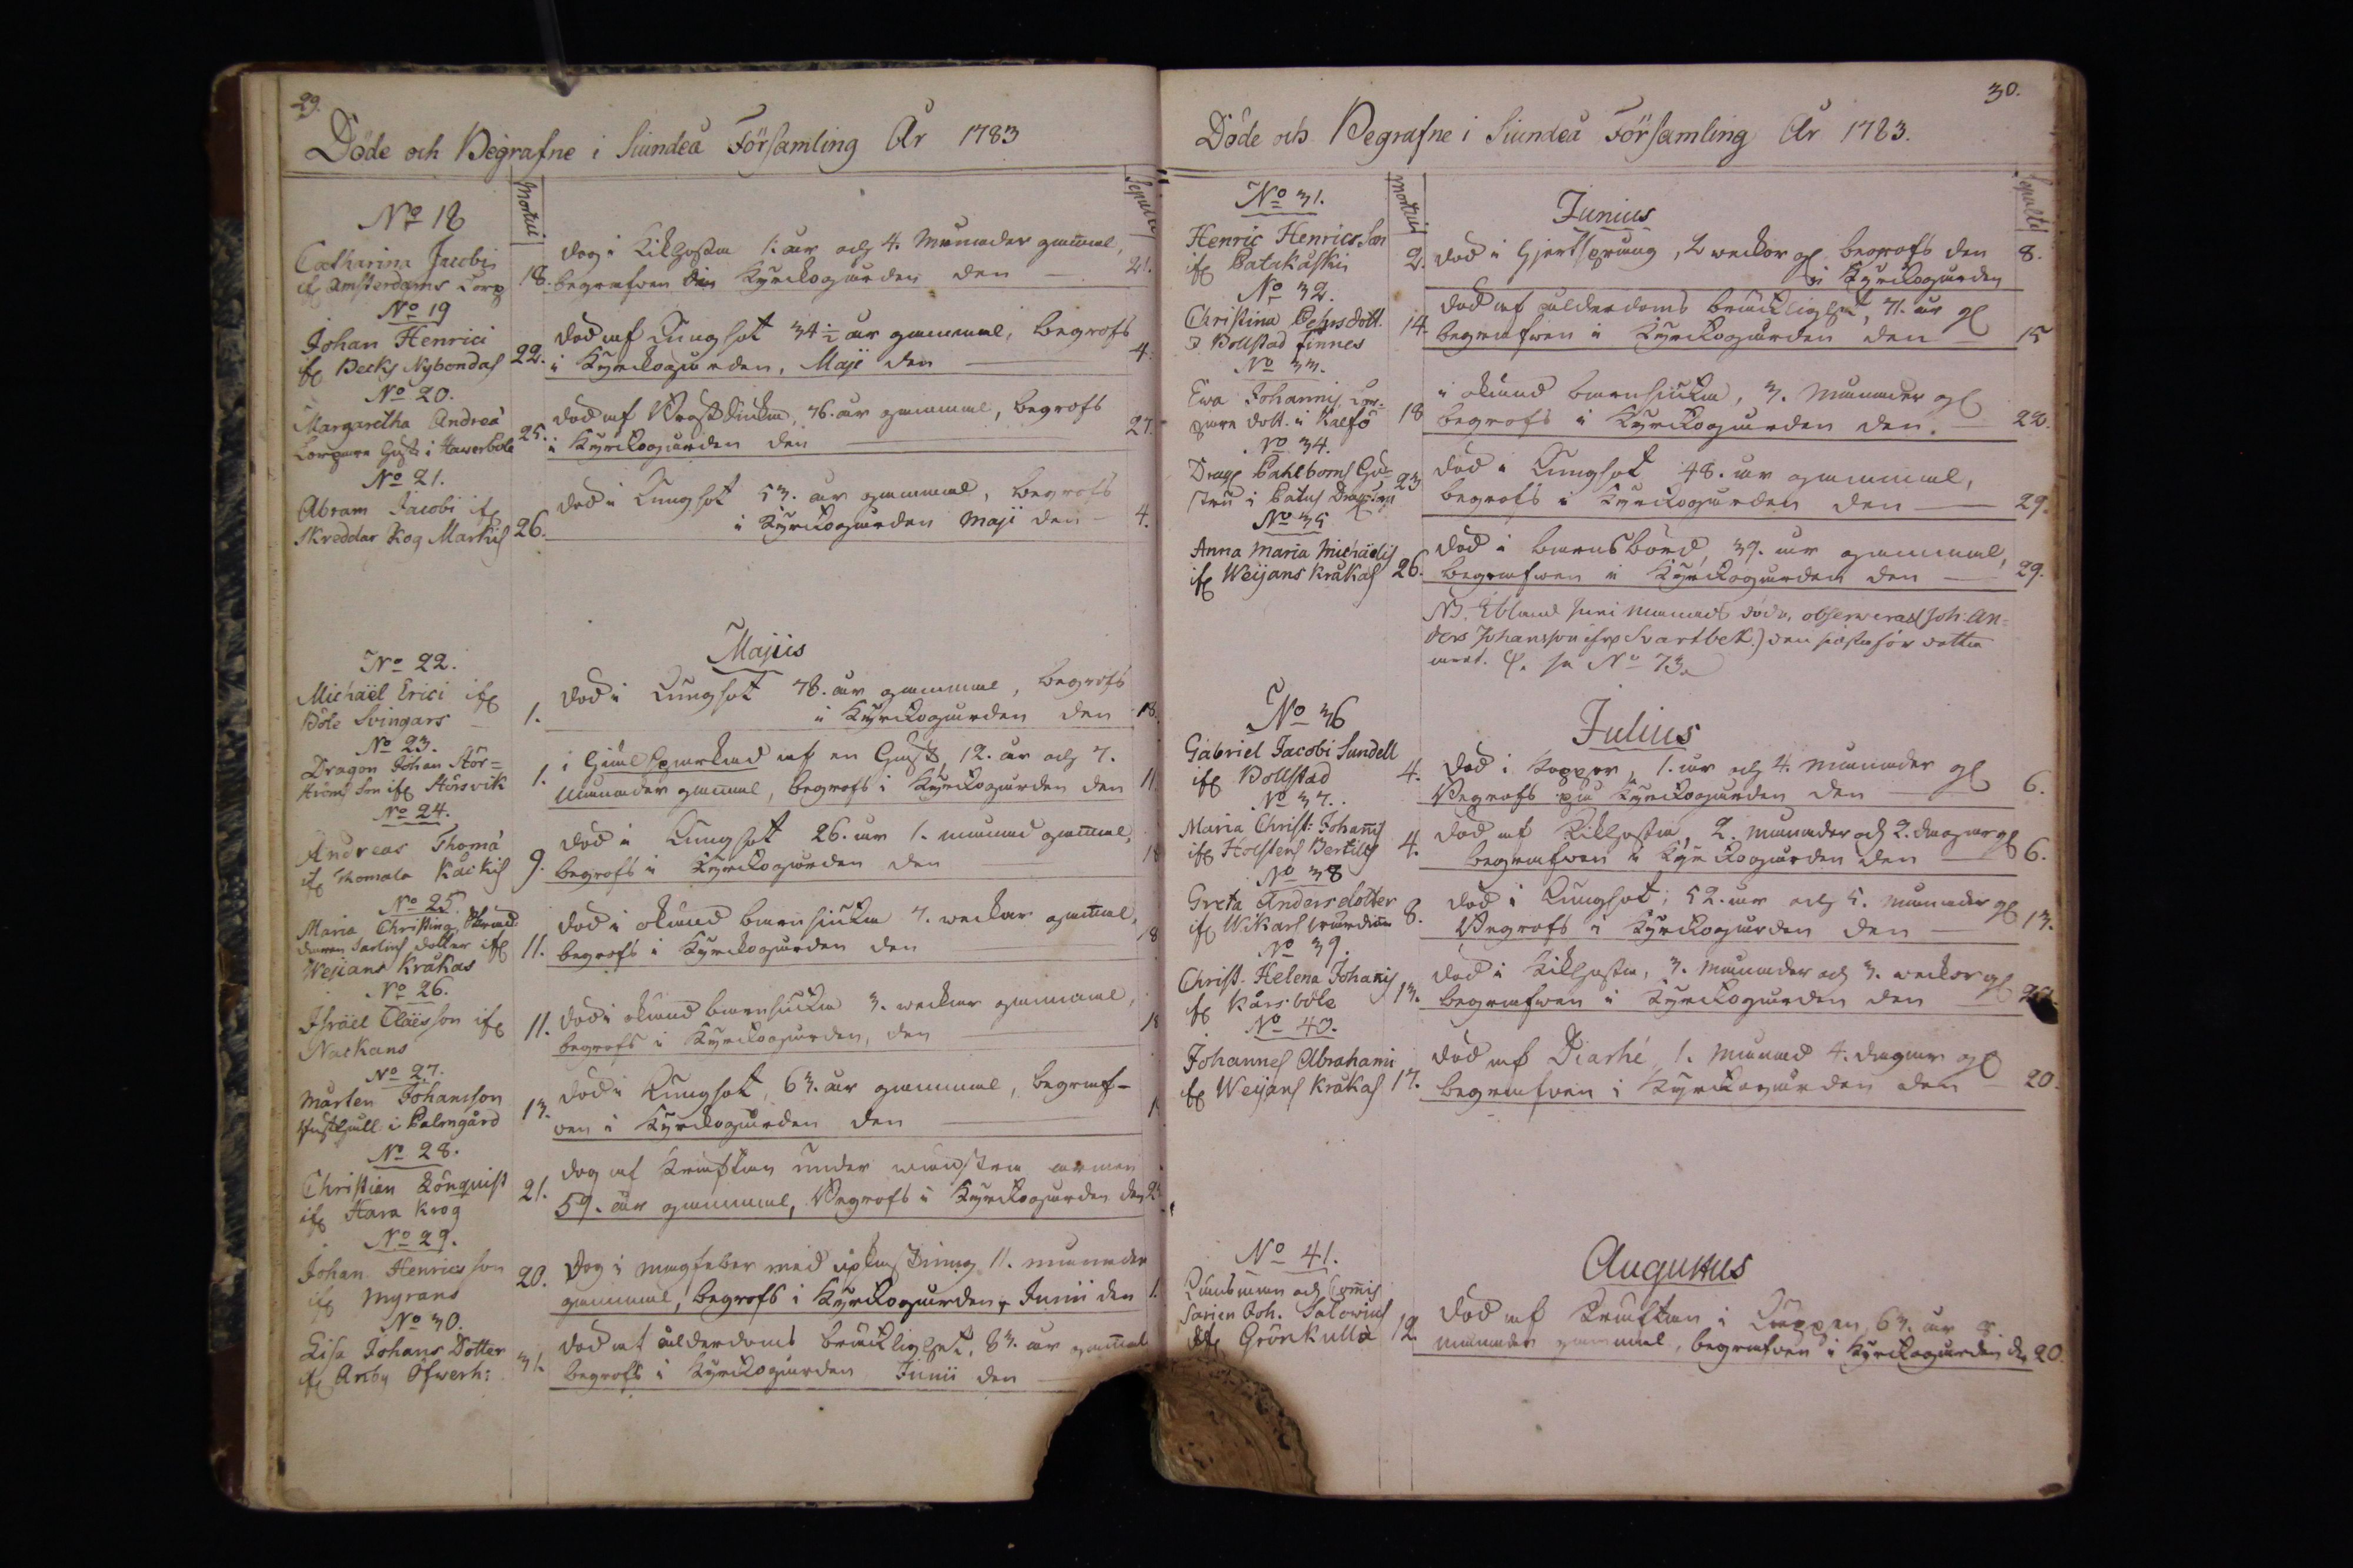 29.
Döde och Begrafne i Siundeå Församling År 1783
Mortui
Sepulti
No 18
Catharina Jacobi
if Amsterdams Torp
18.
dog i Kikhosta 1. åhr och 4. Månader gammal,
begrafven i Kyrkogården den — 21.
No 19
Johan Henrici
if Becks Nybondas
22.
död af Lungsot 34 1/2 år gammal, begrofs
i Kyrkogården, Maji den — 4.
No 20.
Margaretha Andreæ
i Hawerböle
25.
död af Bröstsiuka, 76. år gammal, begrofs
i Kyrkogården den — 27.
No 21.
Abram Jacobi if
Skreddar Kog Markis
26.
död i Lungsot 53. år gammal, begrofs
i Kyrkogården Maji den — 4.
Majus
No 22.
Michäel Erici if
Böle Svingars
1.
död i Lungsot 78. år gammal, begrofs
i Kyrkogården den 18
No 23.
Dragon Johan Stör=
ströms Son if Störsvik
1.
i Hiälsparkad af en Häst, 12. år och 7.
Månader gammal, begrofs i Kyrkogården den 11
No 24.
Andreas Thomæ
if Thomala Käckis
9.
död i Lungsot 26. år 1. månad gammal,
begrofs i Kyrkogården den — 18
No 25.
Maria Christina
Sarlins dotter if
Weijans Kråkas
11.
död i okänd barnsiuka 7. weckor gammal,
begrofs i Kyrkogården den 18
No 26.
Israël Claësson if
Nackans
11.
död i okänd barnsiuka 3. weckor gammal,
begrofs i Kyrkogården, den — 18
No 27.
Mårten Johansson
i Palmgård
13.
död i Lungsot, 63. år gammal, begraf-
ven i Kyrkogården den —
No 28.
Christian Lönquist
if Hara Krog
21.
dog af Kräftan under wänstra armen
59. år gammal, Begrofs i Kyrkogården den
No 29.
Johan Henricsson
if Myrans
20.
Dog i magfeber med upkastning 11. månader
gammal, begrofs i Kyrkogården, Junii den 1.
No 30.
Lisa Johans Dotter
if Anby Öfwerh:
31.
död af ålderdoms bräcklighet, 83. år gammal
begrofs i Kyrkogården Junii den —
30.
Döde och Begrafne i Siundeå Församling År 1783.
Mortui
Sepulti
Junius
No 31.
Henric Henrics Son
if Patakåskis
2.
död i Hjertsprång, 2 weckor gl begrofs den 8.
i Kyrkogården
No 32.
Christina Pehrsdott.
Bollstad finnes
14.
död af ålderdoms bräcklighet, 71. år gl
begrafven i Kyrkogården den — 15
No 33.
Ewa Johannis
dott. i Kalfö
18
i okänd barnsiuka, 3. Månader gl
begrofs i Kyrkogården den. — 22.
No 34.
Drag. Pahlboms Hu-
stru i Patus
23
död i Lungsot 48. år gammal,
begrofs i Kyrkogården den — 29.
No 35
Anna Maria Michäelis
if Weijans Kråkas
26.
död i barnsbörd, 39. år gammal,
begrafven i Kyrkogården den — 29.
NB. Ibland Junii Månads döda, observeras Joh: An=
ders Johansson ifrp Svartbek.) den sidste för detta
se No 73.
Julius
No 36
Gabriel Jacobi Sundell
if Bollstad
4.
död i Koppor, 1. år och 4. Månader gl
Begrofs på Kyrkogården den — 6.
No 37.
Maria Christ: Johannis
if Holstens Bertills
4.
död af Kikhosta, 2. Månader och 2. dagar gl
begrafven i Kyrkogården den — 6.
No 38
Greta Anders dotter
if Wikars
8.
död i Lungsot; 52. år och 5. månader gl
Begrofs i Kyrkogården den — 13.
No 39.
Christ. Helena Johannis
if Kårsböle
13.
död i Kikhosta, 3. månader och 3. weckor gl
begrafven i Kyrkogården den — 20.
No 40.
Johannes Abrahami
if Weijans Kråkas
17.
död af Diarhé, 1. Månad 4. dagar gl
begrafven i Kyrkogården den — 20.
Augustus
No 41.
Länsman och Commis
sarien Joh. Salowius
if Grönkulla
12.
död af Kräftan i Läppen, 63. år 8.
månader gammal, begrafven i Kyrkogården d. 20.